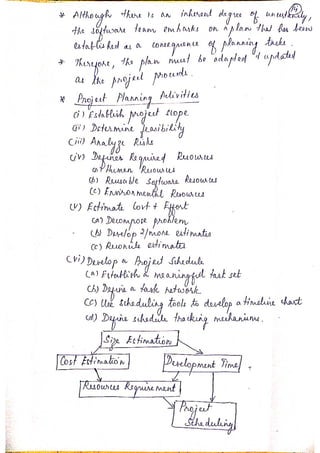 14
* Although there is an inherent degree of uncertainty,
the software team embarks on a plan that has been
established as a consequence of planning tasks.
* Therefore, the plan must be adapted & updated
as the project proceeds.
* Project Planning Activities
(i) Establish project scope
(ii) Determine feasibility
(iii) Analyze Risks
(iv) Defines Required Resources
(a) Human Resources
(b) Reusable Software Resources
(c) Environmental Resources
(v) Estimate Cost & Effort
(a) Decompose problem
(b) Develop 2/more estimates
(c) Reconcile estimates
(vi) Develop a Project Schedule
(a) Establish a meaningful task set
(b) Define a task network
(c) Use scheduling tools to develop a timeline chart
(d) Define schedule tracking mechanisms.
Size Estimation
Cost Estimation
Development Time
Resources Requirement
Project
Scheduling